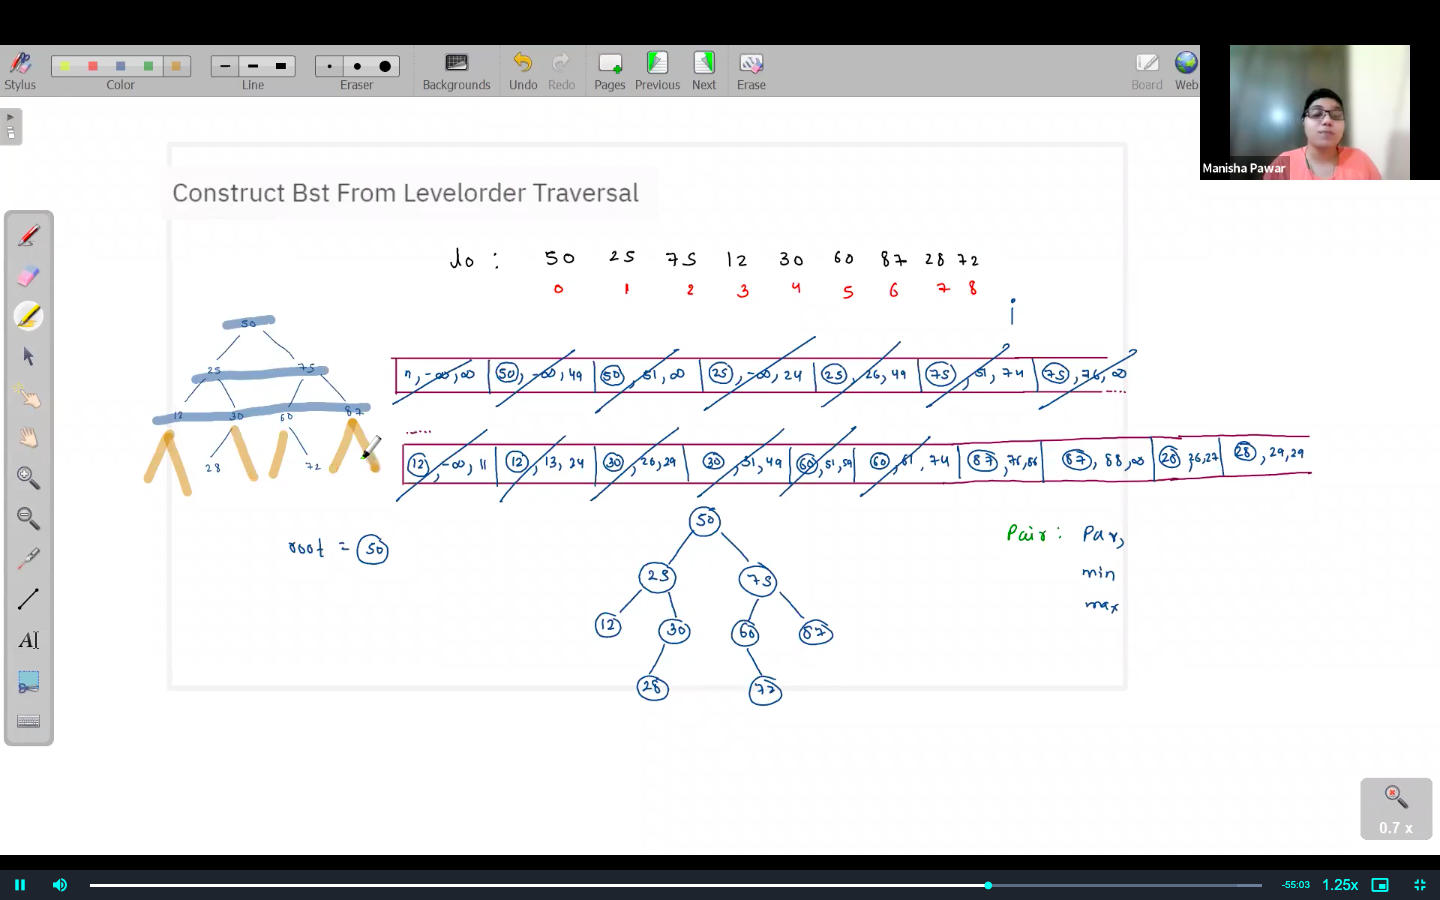 Stylus
Color
Line
Eraser
Backgrounds
Undo
Redo
Pages
Previous
Next
Erase
Board
Web
Manisha Pawar
Construct Bst From Levelorder Traversal
lo : 50 25 75 12 30 60 87 28 72
0 1 2 3 4 5 6 7 8
i
50
25 75
12 30 60 87
28 72
n, -∞, ∞ | 50, -∞, 49 | 50, 51, ∞ | 25, -∞, 24 | 25, 26, 49 | 75, 51, 74 | 75, 76, ∞
12, -∞, 11 | 12, 13, 24 | 30, 26, 29 | 30, 31, 49 | 60, 51, 59 | 60, 61, 74 | 87, 76, 86 | 87, 88, ∞ | 28, 26, 27 | 28, 29, 29
root = 50
50
25 75
12 30 60 87
28 72
Pair : Par,
min
max
AI
0.7 x
-55:03
1.25x